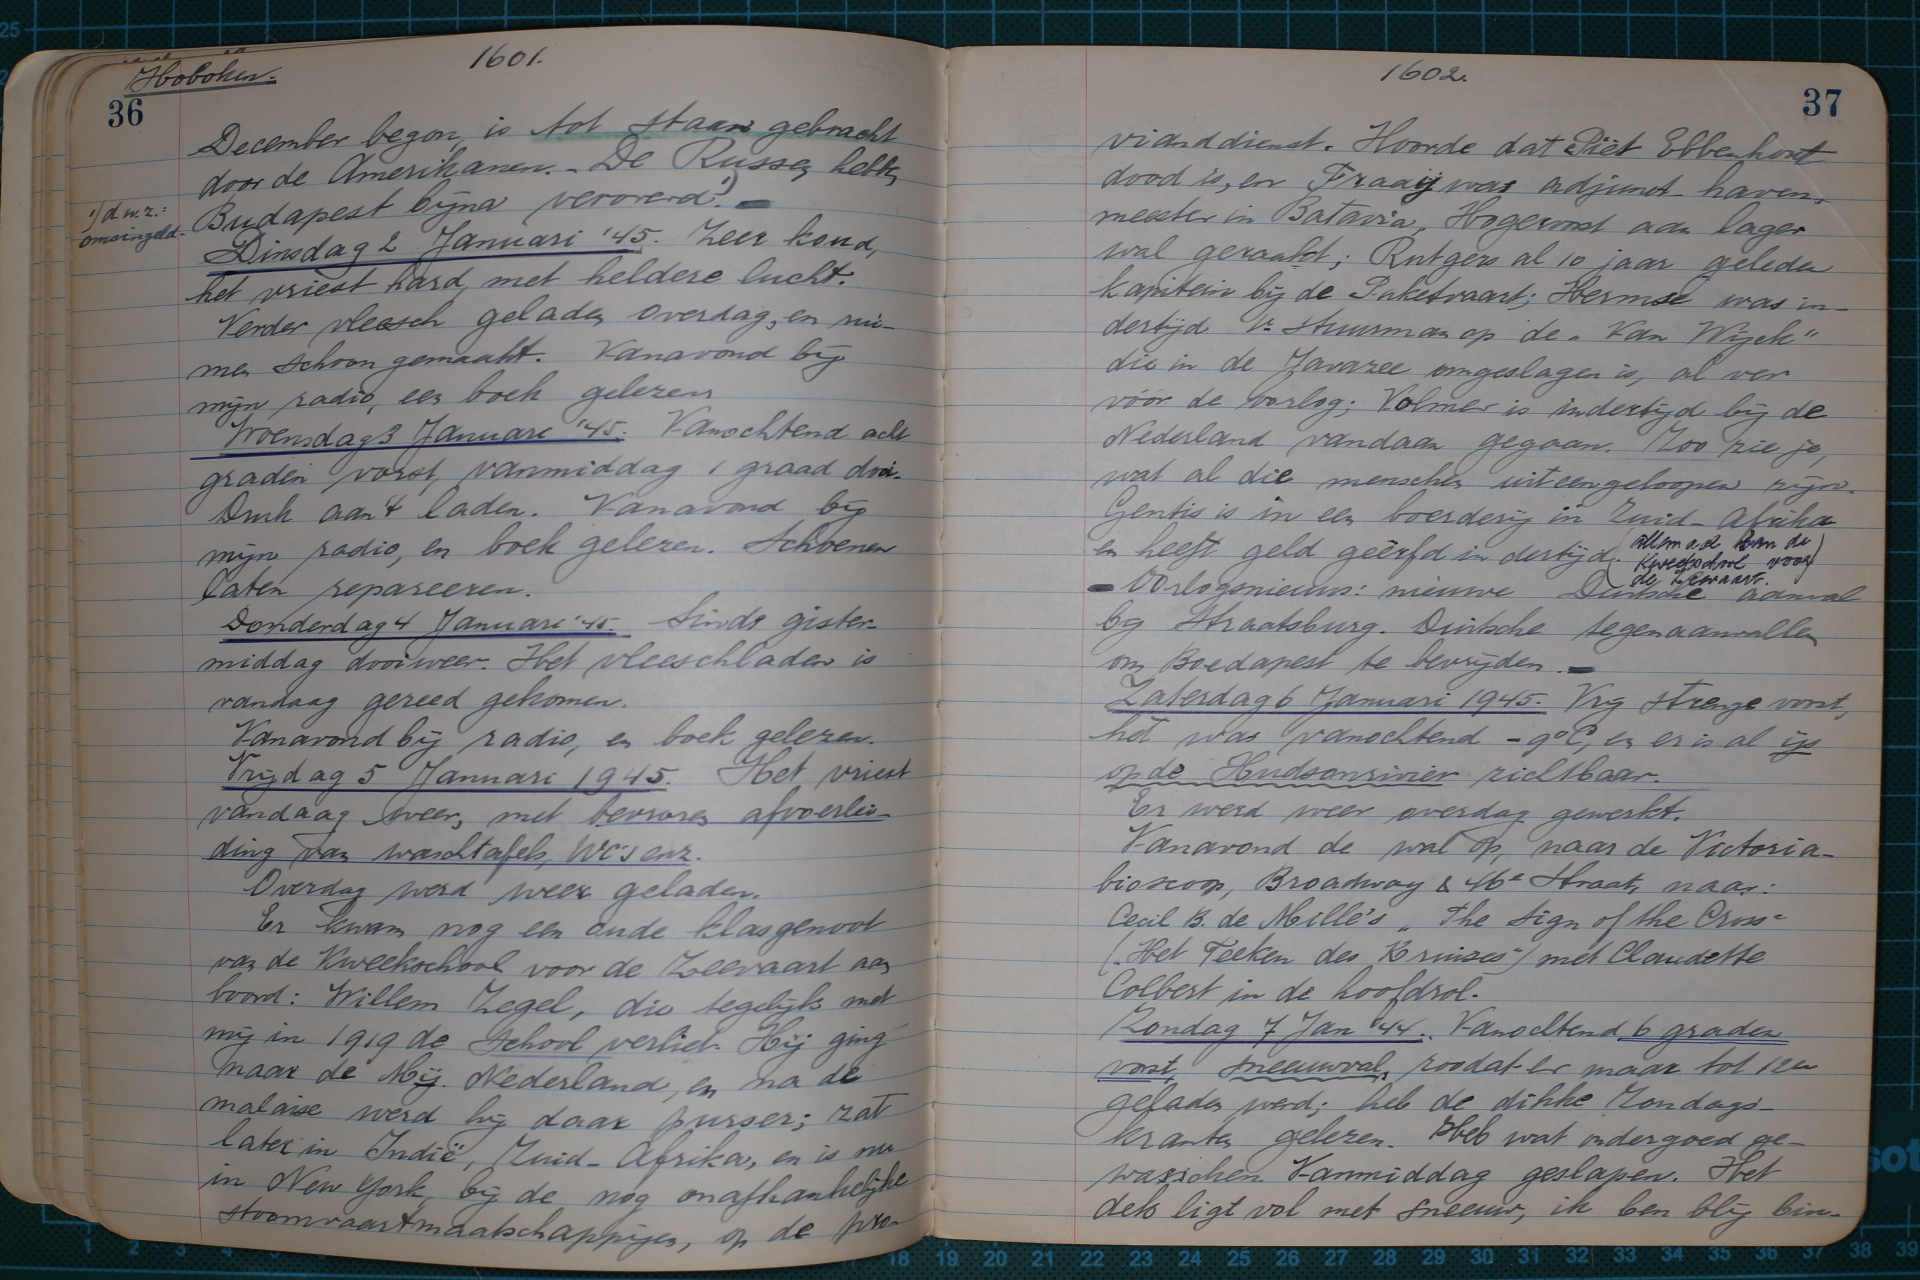 Hoboken.
1601.
36
December begon, is tot staan gebracht
door de Amerikanen. - De Russen hebben
Budapest bijna veroverd.¹) -
1) d.w.z.:
omsingeld.
Dinsdag 2 Januari '45. Zeer koud,
het vriest hard, met heldere lucht.
Verder vleesch geladen overdag, en rui-
men schoon gemaakt. Vanavond bij
mijn radio, een boek gelezen.
Woensdag 3 Januari '45. Vanochtend acht
graden vorst, vanmiddag 1 graad dooi.
Druk aan 't laden. Vanavond bij
mijn radio, en boek gelezen. Schoenen
laten repareeren.
Donderdag 4 Januari '45. Sinds gister-
middag dooiweer. Het vleeschladen is
vandaag gereed gekomen.
Vanavond bij radio, en boek gelezen.
Vrijdag 5 Januari 1945. Het vriest
vandaag weer, met bevroren afvoerlei-
ding van waschtafels, WC's enz.
Overdag werd weer geladen.
Er kwam nog een oude klasgenoot
van de Kweekschool voor de Zeevaart aan
boord: Willem Zegel, die tegelijk met
mij in 1919 de School verliet. Hij ging
naar de Mij. Nederland, en na de
malaise werd hij daar purser; zat
later in Indië, Zuid-Afrika, en is nu
in New York, bij de nog onafhankelijke
stoomvaartmaatschappijen, op de pro-
1602.
37
vianddienst. Hoorde dat Piet Ebbenhorst
dood is, en Fraaij was adjunct-haven-
meester in Batavia, Hogervorst aan lager
wal geraakt; Rutgers al 10 jaar geleden
kapitein bij de Paketvaart; Hermse was in-
dertijd 1e stuurman op de "Van Wijck"
die in de Javazee omgeslagen is, al ver
vóór de oorlog; Volmer is indertijd bij de
Nederland vandaan gegaan. Zoo zie je,
wat al die menschen uiteengeloopen zijn.
Gentis is in een boerderij in Zuid-Afrika
en heeft geld geërfd indertijd. (Allemaal van de
Kweekschool voor
de Zeevaart.)
- Oorlogsnieuws: nieuwe Duitsche aanval
bij Straatsburg. Duitsche tegenaanvallen
om Boedapest te bevrijden. -
Zaterdag 6 Januari 1945. Vrij strenge vorst,
het was vanochtend -9°C, en er is al ijs
op de Hudsonrivier zichtbaar.
Er werd weer overdag gewerkt.
Vanavond de wal op, naar de Victoria-
bioscoop, Broadway & 46e Straat, naar:
Cecil B. de Mille's "The Sign of the Cross"
("Het Teeken des Kruises") met Claudette
Colbert in de hoofdrol.
Zondag 7 Jan '44. Vanochtend 6 graden
vorst, sneeuwval, zoodat er maar tot 12u
geladen werd; heb de dikke Zondags-
kranten gelezen. Heb wat ondergoed ge-
wasschen. Vanmiddag geslapen. Het
dek ligt vol met sneeuw, ik ben blij bin-